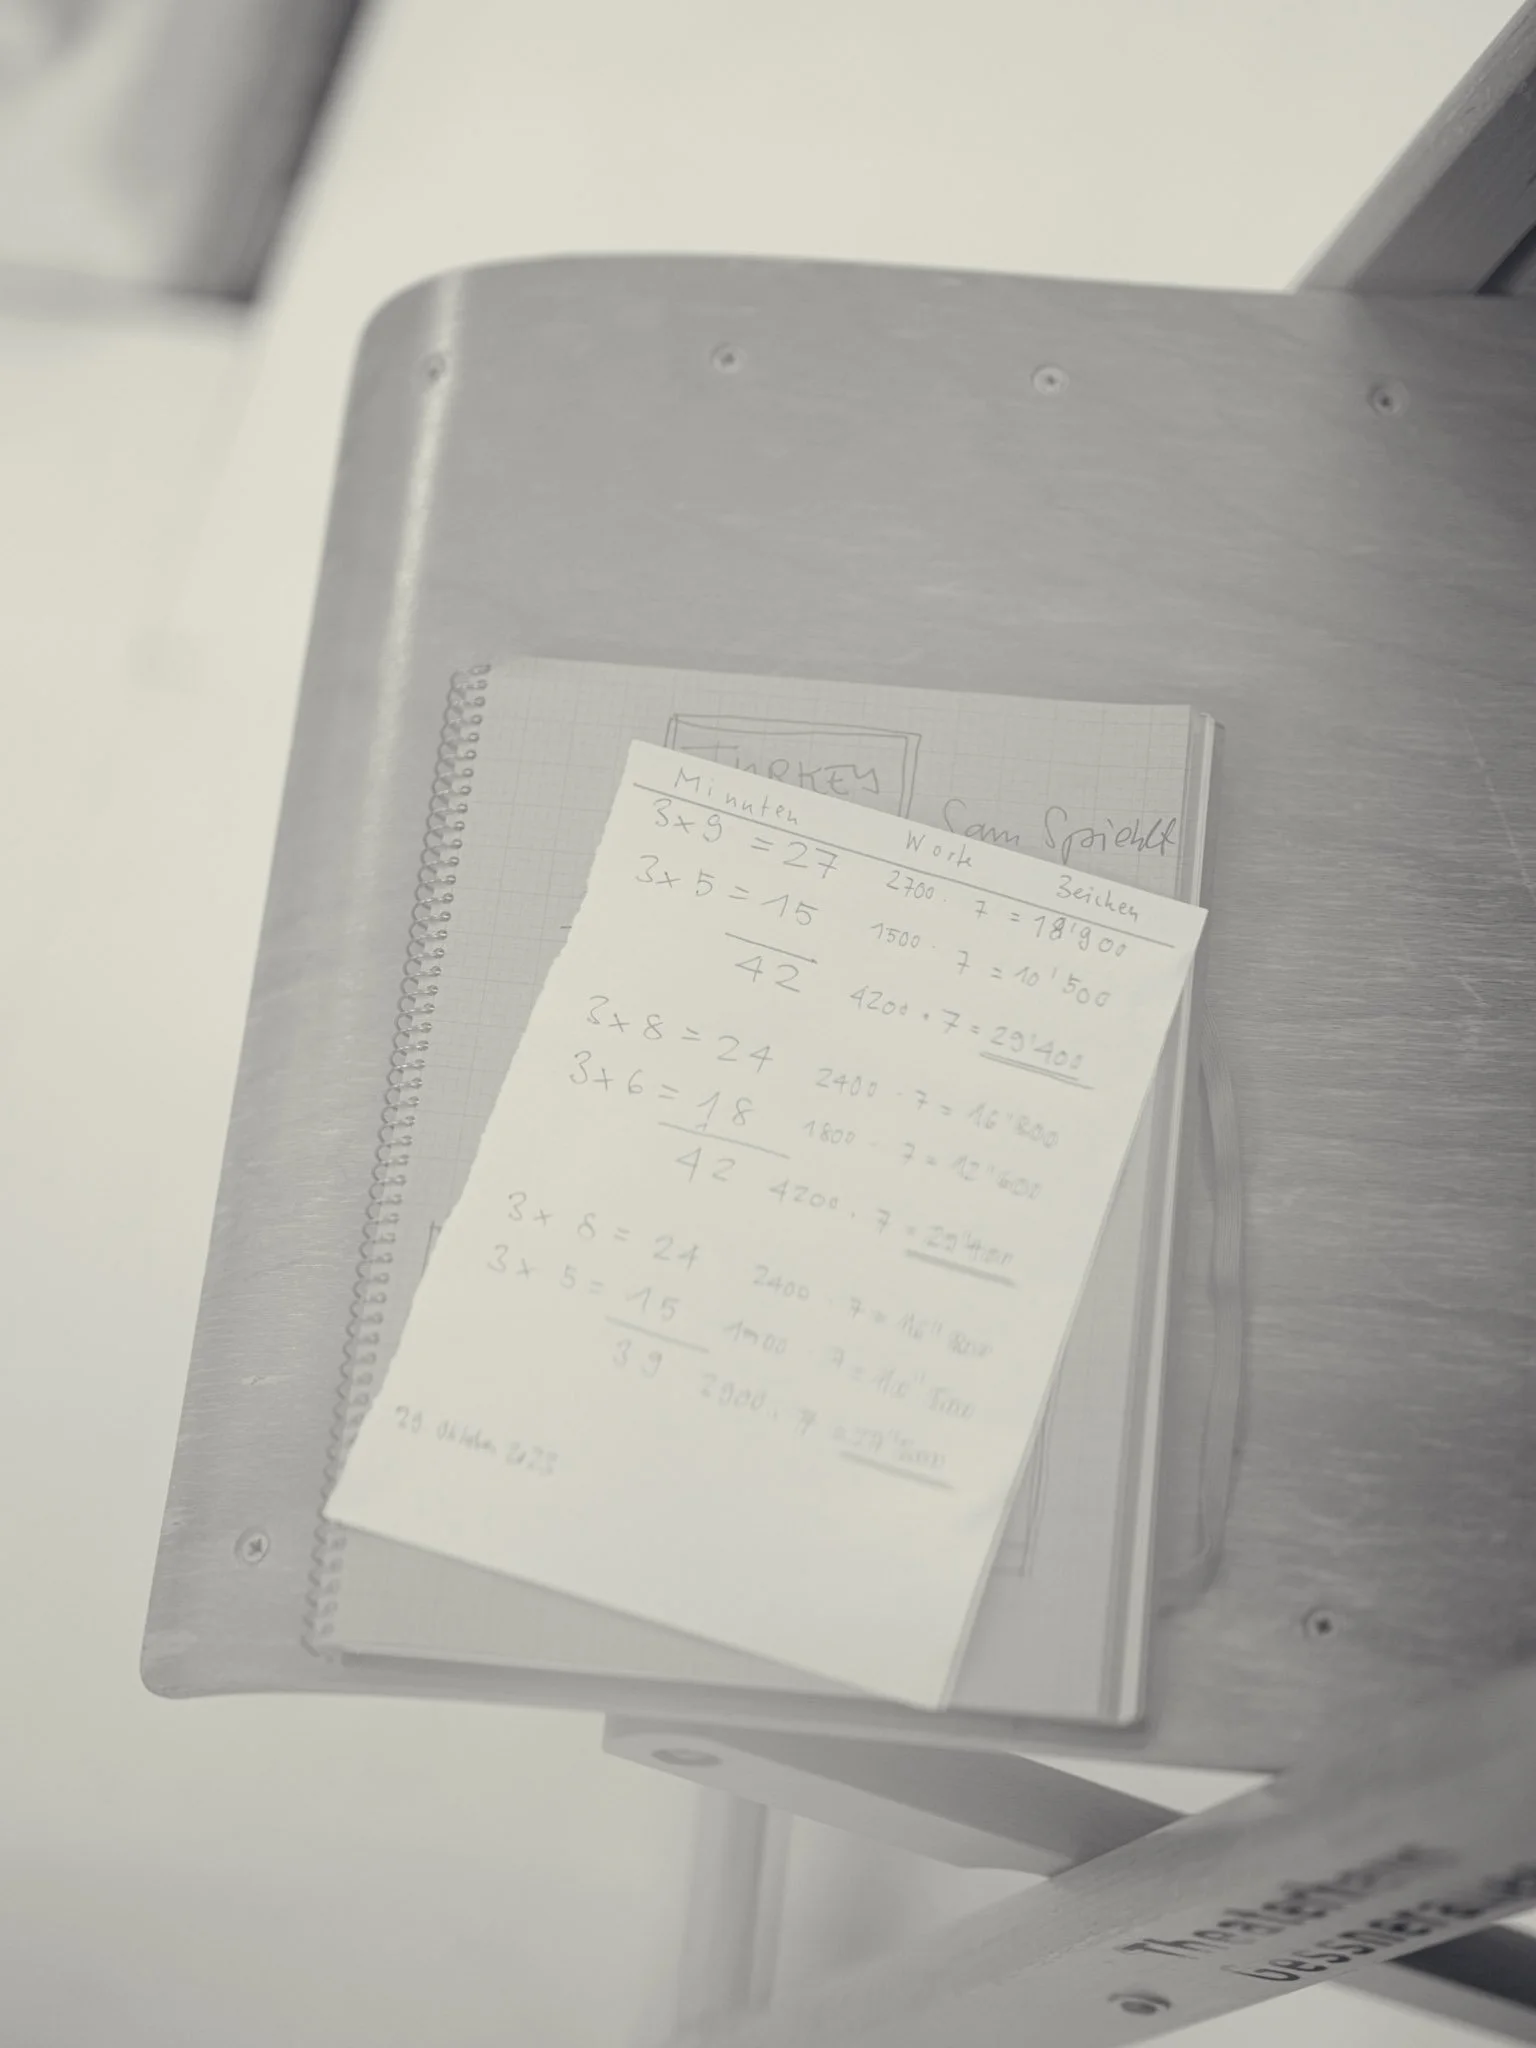 TURKEY
Sam Spiehlt
Minuten Worte Zeichen
3x9 = 27 2700 · 7 = 18'900
3x5 = 15 1500 · 7 = 10'500
42 4200 · 7 = 29'400
3x8 = 24 2400 · 7 = 16'800
3x6 = 18 1800 · 7 = 12'600
42 4200 · 7 = 29'400
3x 8 = 24 2400 · 7 = 16'800
3x 5 = 15 7 =
39 · 7 =
29. Oktober
Theaterhaus
Gessnera